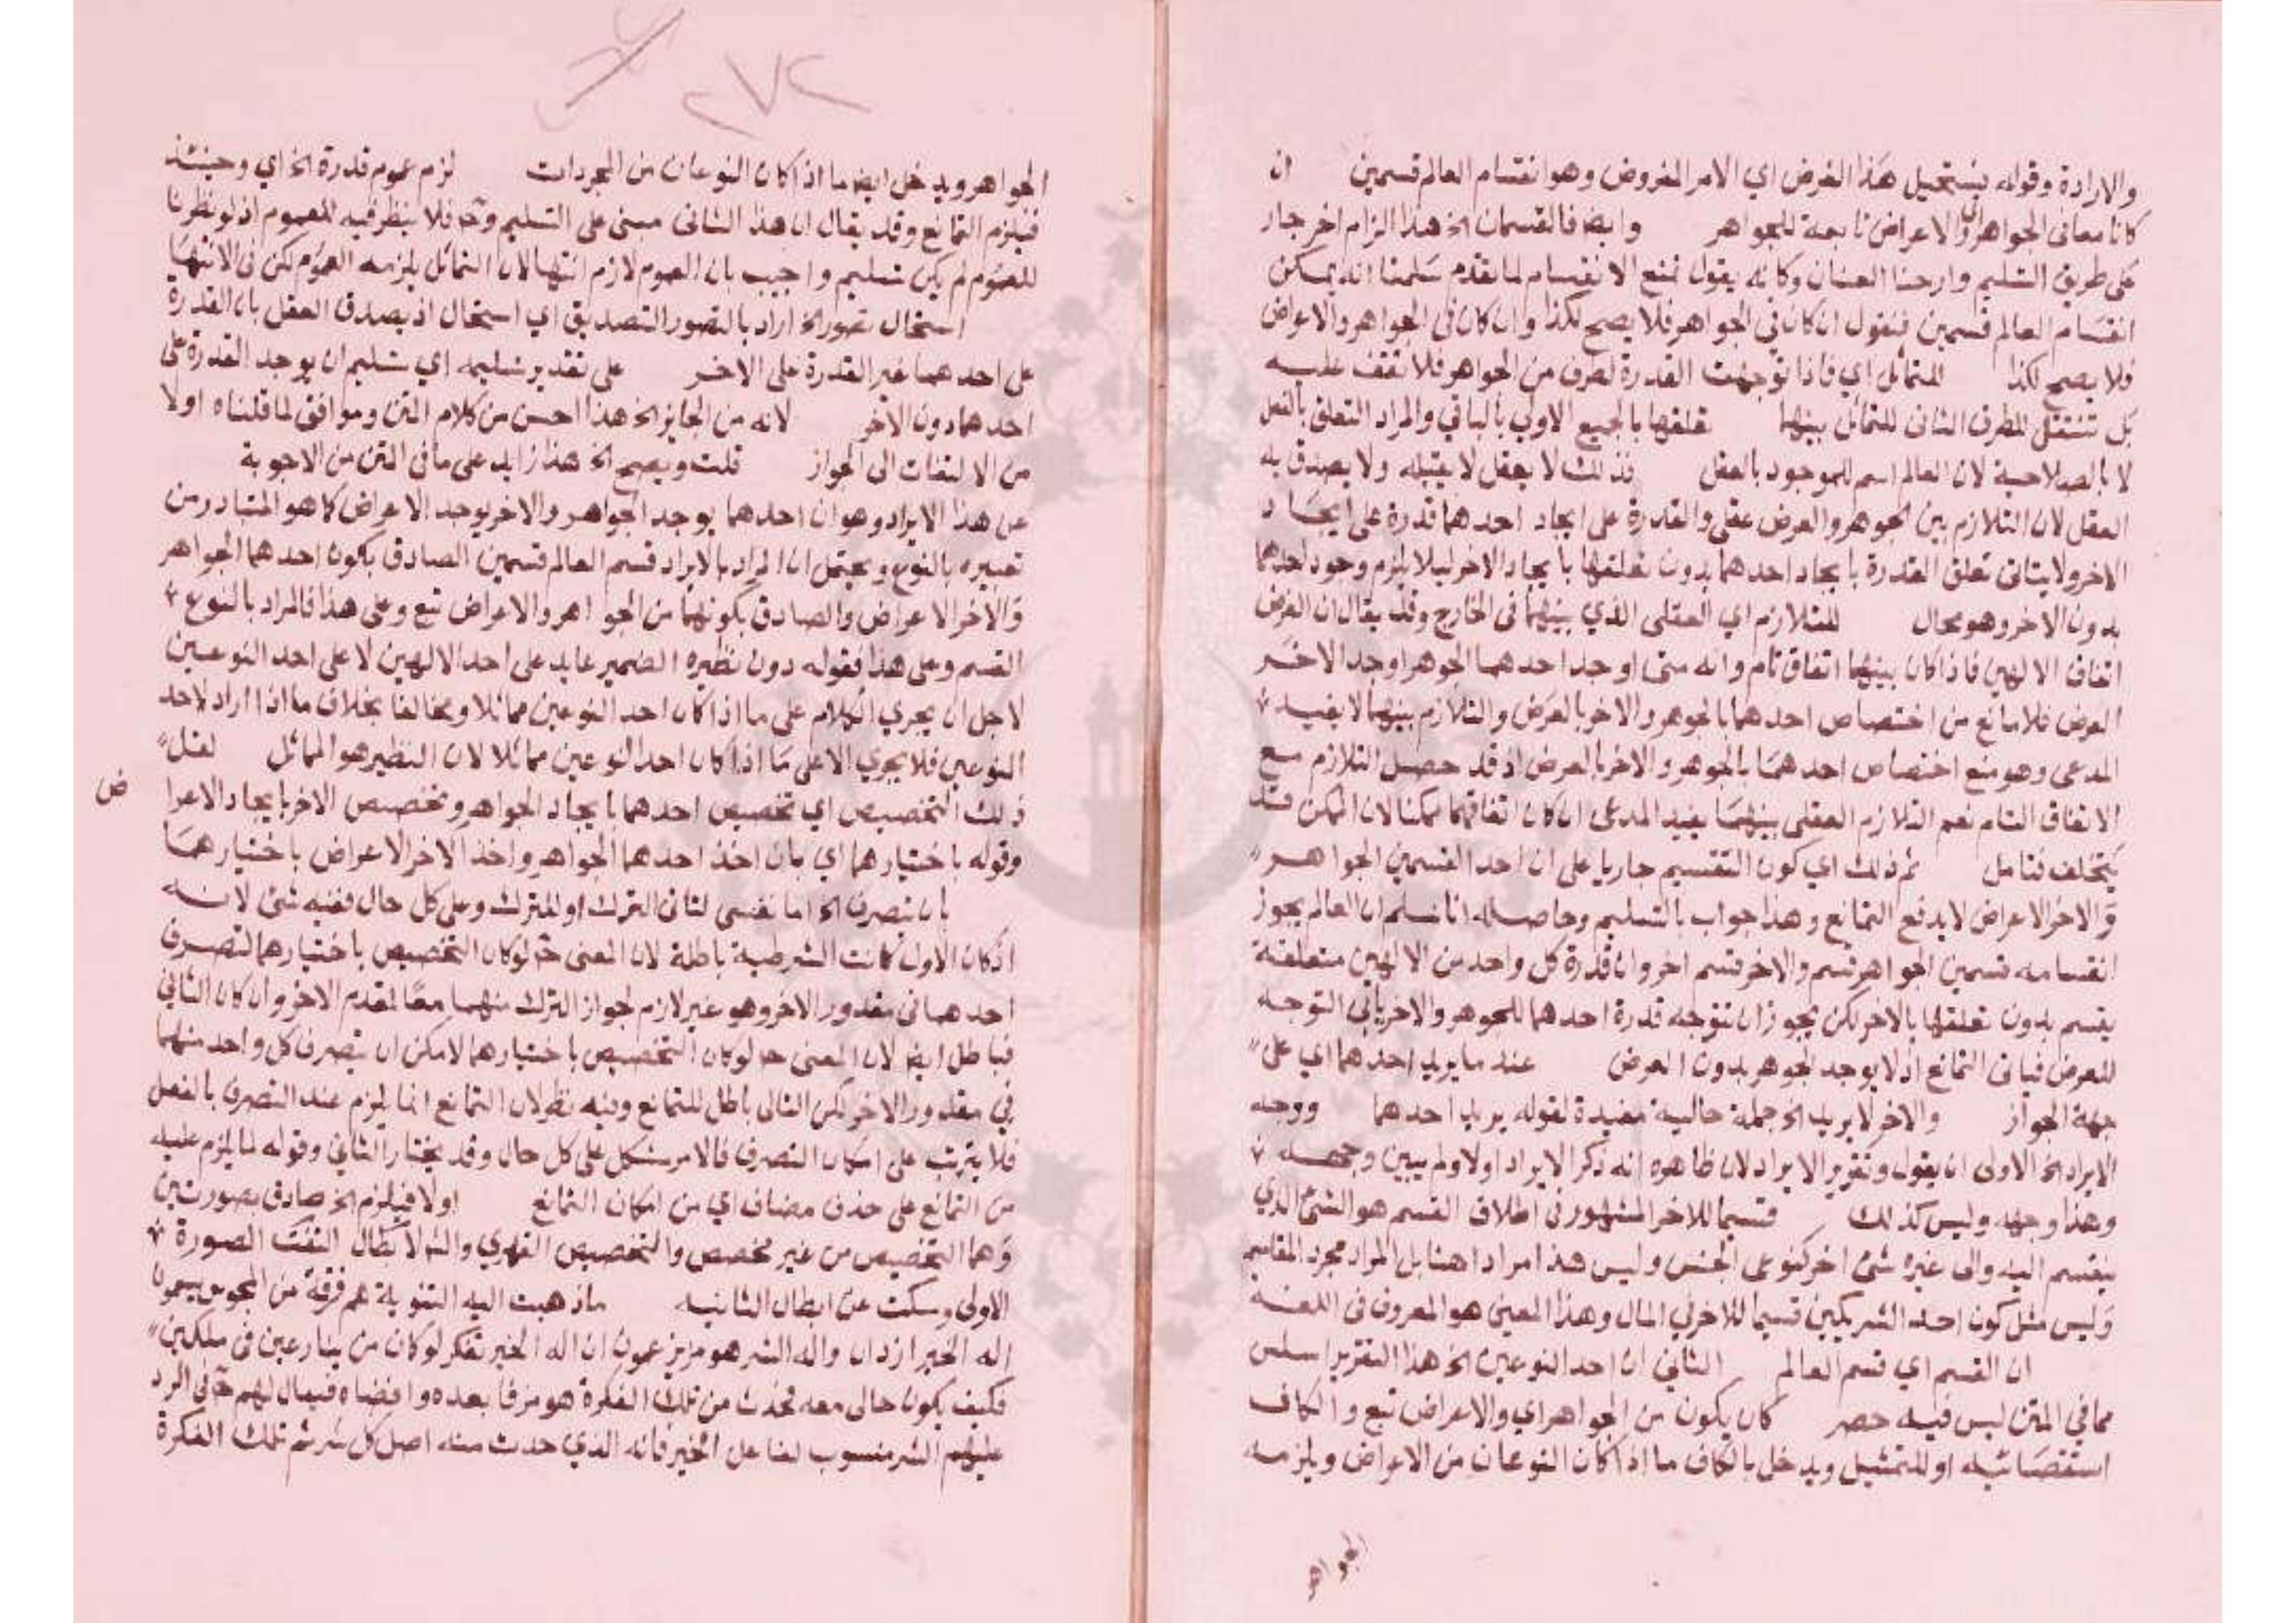 والارادة وقوله يستحيل هذا الفرض اي الامر المفروض وهو انقسام العالم قسمين ان
كانا معا في الجواهر والاعراض تابعة للجواهر وايضا فالقسمان الخ هذا الزام اخر جار
على طريق التسليم وارخاء العنان وكانه يقول نمنع الانقسام لما تقدم سلمنا انه يمكن
انقسام العالم قسمين فنقول ان كان في الجواهر فلا يصح لكذا وان كان في الجواهر والاعراض
فلا يصح لكذا للتماثل اي فاذا توجهت القدرة لطرف من الجواهر فلا تقف عليه
بل تنتقل للطرف الثاني للتماثل بينها تعلقها بالجميع الاولى بالباقي والمراد التعلق بالفعل
لا بالصلاحية لان العالم اسم للموجود بالفعل فذلك لا يعقل لا يقبله ولا يصدق به
العقل لان التلازم بين الجوهر والعرض عقلي والقدرة على ايجاد احدهما قدرة على ايجاد
الاخر ولا يتاتى تعلق القدرة بايجاد احدهما بدون تعلقها بايجاد الاخر ليلا يلزم وجود احدهما
بدون الاخر وهو محال للتلازم اي العقلي الذي بينهما في الخارج وقد يقال ان الفرض
اتفاق الالهين فاذا كان بينهما اتفاق تام وانه متى اوجد احدهما الجوهر اوجد الاخر
العرض فلا مانع من اختصاص احدهما بالجوهر والاخر بالعرض والتلازم بينهما لا يفيد
المدعى وهو منع اختصاص احدهما بالجوهر والاخر بالعرض اذ قد حصل التلازم مع
الاتفاق التام نعم التلازم العقلي بينهما يفيد المدعى ان كان اتفاقهما ممكنا لان الممكن قد
يتخلف فتامل ثم ذلك اي كون التقسيم جاريا على ان احد القسمين الجواهر
والاخر الاعراض لا يدفع التمانع وهذا جواب بالتسليم وحاصله انا نسلم ان العالم يجوز
انقسامه قسمين الجواهر قسم والاخر قسم اخر وان قدرة كل واحد من الالهين متعلقة
بقسم بدون تعلقها بالاخر لكن يجوز ان تتوجه قدرة احدهما للجوهر والاخر يابى التوجه
للعرض فياتي التمانع اذ لا يوجد جوهر بدون العرض عند ما يريد احدهما اي على
جهة الجواز والاخر لا يريد الخ جملة حالية مفيدة لقوله يريد احدهما ووجه
الايراد الخ الاولى ان يقول وتقرير الايراد لان ظاهره انه ذكر الايراد اولا ولم يبين وجهه
وهذا وجهه وليس كذلك قسيما للاخر المشهور في اطلاق القسم هو الشئ الذي
ينقسم اليه والى غيره شئ اخر كنوعي الجنس وليس هذا مرادا هنا بل المراد مجرد المقاسم
وليس مثل كون احد الشريكين قسيما للاخر في المال وهذا المعنى هو المعروف في اللغة
ان القسم اي قسم العالم الثاني ان احد النوعين الخ هذا التقرير اسلس
مما في المتن ليس فيه حصر كان يكون من الجواهر اي والاعراض تبع والكاف
استقصائية او للتمثيل ويدخل بالكاف ما اذا كان النوعان من الاعراض ويلزمه
الجواهر
٢٧٢
الجواهر ويدخل ايضا ما اذا كان النوعان من المجردات لزم عموم قدرة الخ اي وحينئذ
فيلزم التمانع وقد يقال ان هذا الثاني مبني على التسليم وح فلا ينظر فيه للعموم اذ لو نظرنا
للعموم لم يكن تسليم واجيب بان العموم لازم انتهاء لان التماثل يلزمه العموم لكن في الانتهاء
استحال تصوره الخ اراد بالتصور التصديق اي استحال اذ يصدق العقل بان القدرة
على احدهما غير القدرة على الاخر على تقدير تسليمه اي تسليم ان يوجد القدرة على
احدهما دون الاخر لانه من الجايز الخ هذا احسن من كلام المتن وموافق لما قلناه اولا
من الالتفات الى الجواز قلت ويصح الخ هذا زايد على ما في المتن من الاجوبة
عن هذا الايراد وهو ان احدهما يوجد الجواهر والاخر يوجد الاعراض كما هو المتبادر من
تعبيره بالنوع ويحتمل ان المراد بالايراد قسم العالم قسمين الصادق بكون احدهما الجواهر
والاخر الاعراض والصادق بكونهما من الجواهر والاعراض تبع وعلى هذا فالمراد بالنوع
القسم وعلى هذا فقوله دون نظيره الضمير عايد على احد الالهين لا على احد النوعين
لاجل ان يجري الكلام على ما اذا كان احد النوعين مماثلا ومخالفا بخلاف ما اذا اراد لاحد
النوعين فلا يجري الا على ما اذا كان احد النوعين مماثلا لان النظير هو المماثل لعل
ذلك التخصيص اي تخصيص احدهما بايجاد الجواهر وتخصيص الاخر بايجاد الاعرا ض
وقوله باختيارهما اي بان اخذ احدهما الجواهر واخذ الاخر الاعراض باختيارهما
بان يتصرف الخ اما تفسير لتاتي الترك او للترك وعلى كل حال ففيه شئ لانه
اذ كان الاول كانت الشرطية باطلة لان المعنى ح لو كان التخصيص باختيارهما لتصرف
احدهما في مقدور الاخر وهو غير لازم لجواز الترك منهما معا لمقدور الاخر وان كان الثاني
فباطل ايضا لان المعنى ح لو كان التخصيص باختيارهما لامكن ان يتصرف كل واحد منهما
في مقدور الاخر لكن التالي باطل للتمانع وفيه نظر لان التمانع انما يلزم عند التصرف بالفعل
فلا يترتب على امكان التصرف فالامر مشكل على كل حال وقد يختار الثاني وقوله لما يلزم عليه
من التمانع على حذف مضاف اي من امكان التمانع اولا فيلزم الخ صادق بصورتين
وهما التخصيص من غير مخصص والتخصيص القهري والابطال التفت الصورة
الاولى وسكت عن ابطال الثانيه ما ذهبت اليه الثنوية هم فرقة من المجوس يسمون
اله الخير ازدان واله الشر هومز يزعمون ان اله الخير تفكر لو كان من ينازعني في ملكي
فكيف يكون حالي معه فحدث من تلك الفكرة هومز فابعده واقضاه فيقال لهم ح في الرد
عليهم الشر منسوب لفاعل الخير فانه الذي حدث منه اصل كل شر ثم تلك الفكرة